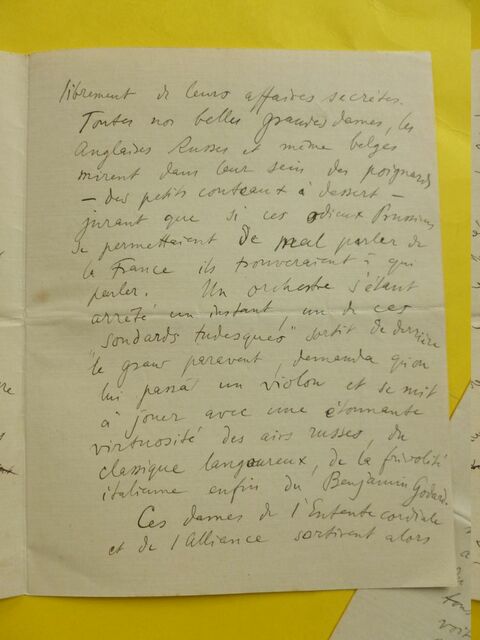 librement de leurs affaires secrètes.
Toutes nos belles grandes dames, les
Anglaises Russes et même belges
mirent dans leur sein des poignards
— des petits couteaux à dessert —
jurant que si ces odieux Prussiens
se permettaient de mal parler de
la France ils trouveraient à qui
parler. Un orchestre s'étant
arrêté un instant, un de ces
"soudards tudesques" sortit de derrière
le grand paravent, demanda qu'on
lui passât un violon et se mit
à jouer avec une étonnante
virtuosité des airs russes, du
classique langoureux, de la frivolité
italienne enfin du Benjamin Godard.
Ces dames de l'Entente cordiale
et de l'Alliance sortirent alors